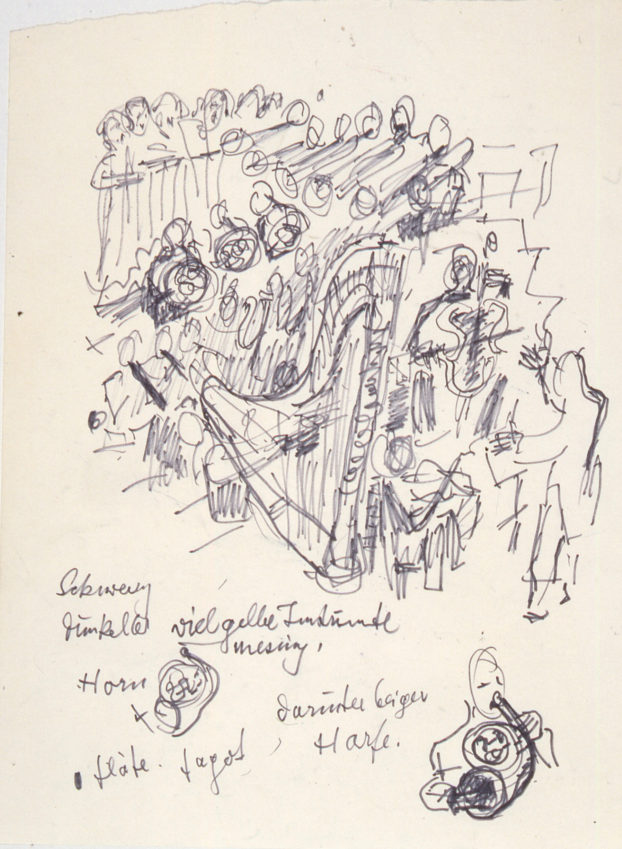 Schwarz
dunkelts viel gelbe Instrumte
mesing,
Horn
darunter beiger
Harfe.
flöte. fagot,